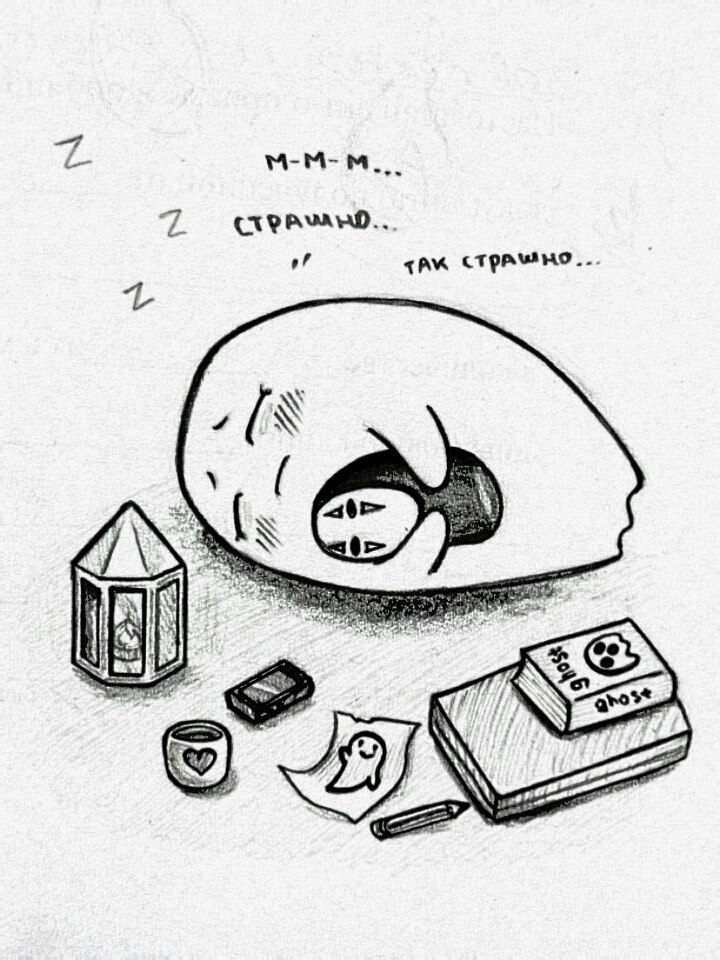 Z
М-М-М...
Z
СТРАШНО...
ТАК СТРАШНО...
Z
ghost
ghost